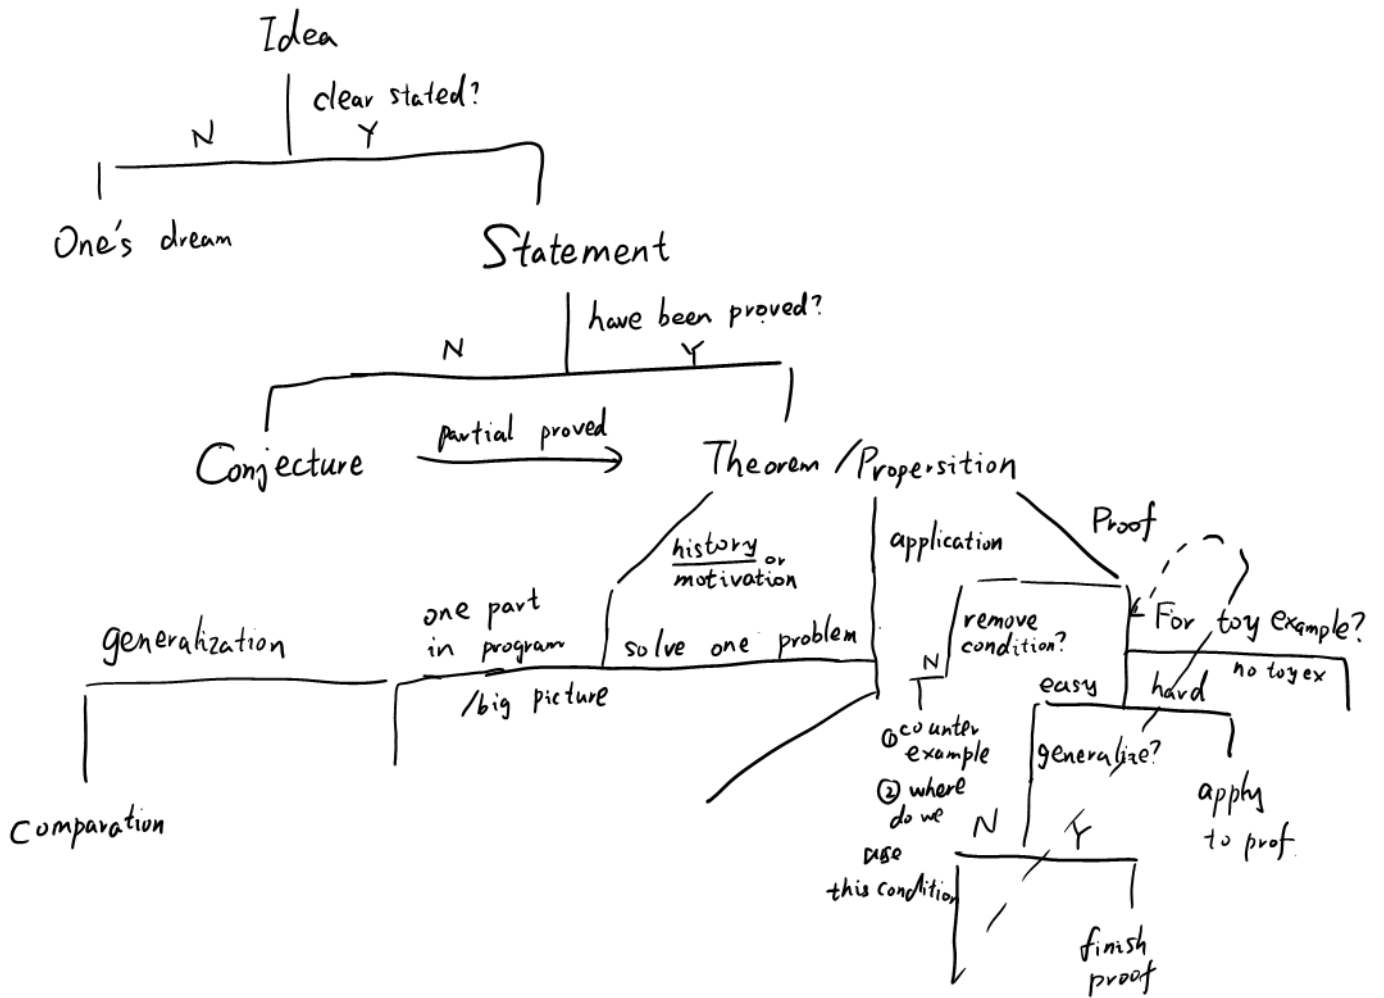 Idea
clear stated?
N
Y
One's dream
Statement
have been proved?
N
Y
Conjecture
partial proved
Theorem / Propersition
history or
motivation
application
Proof
generalization
one part
in program
/big picture
solve one problem
remove
condition?
N
For toy example?
no toy ex
easy
hard
① counter
example
② where
do we
use
this condition
generalize?
N
Y
apply
to prof.
finish
proof
Comparation